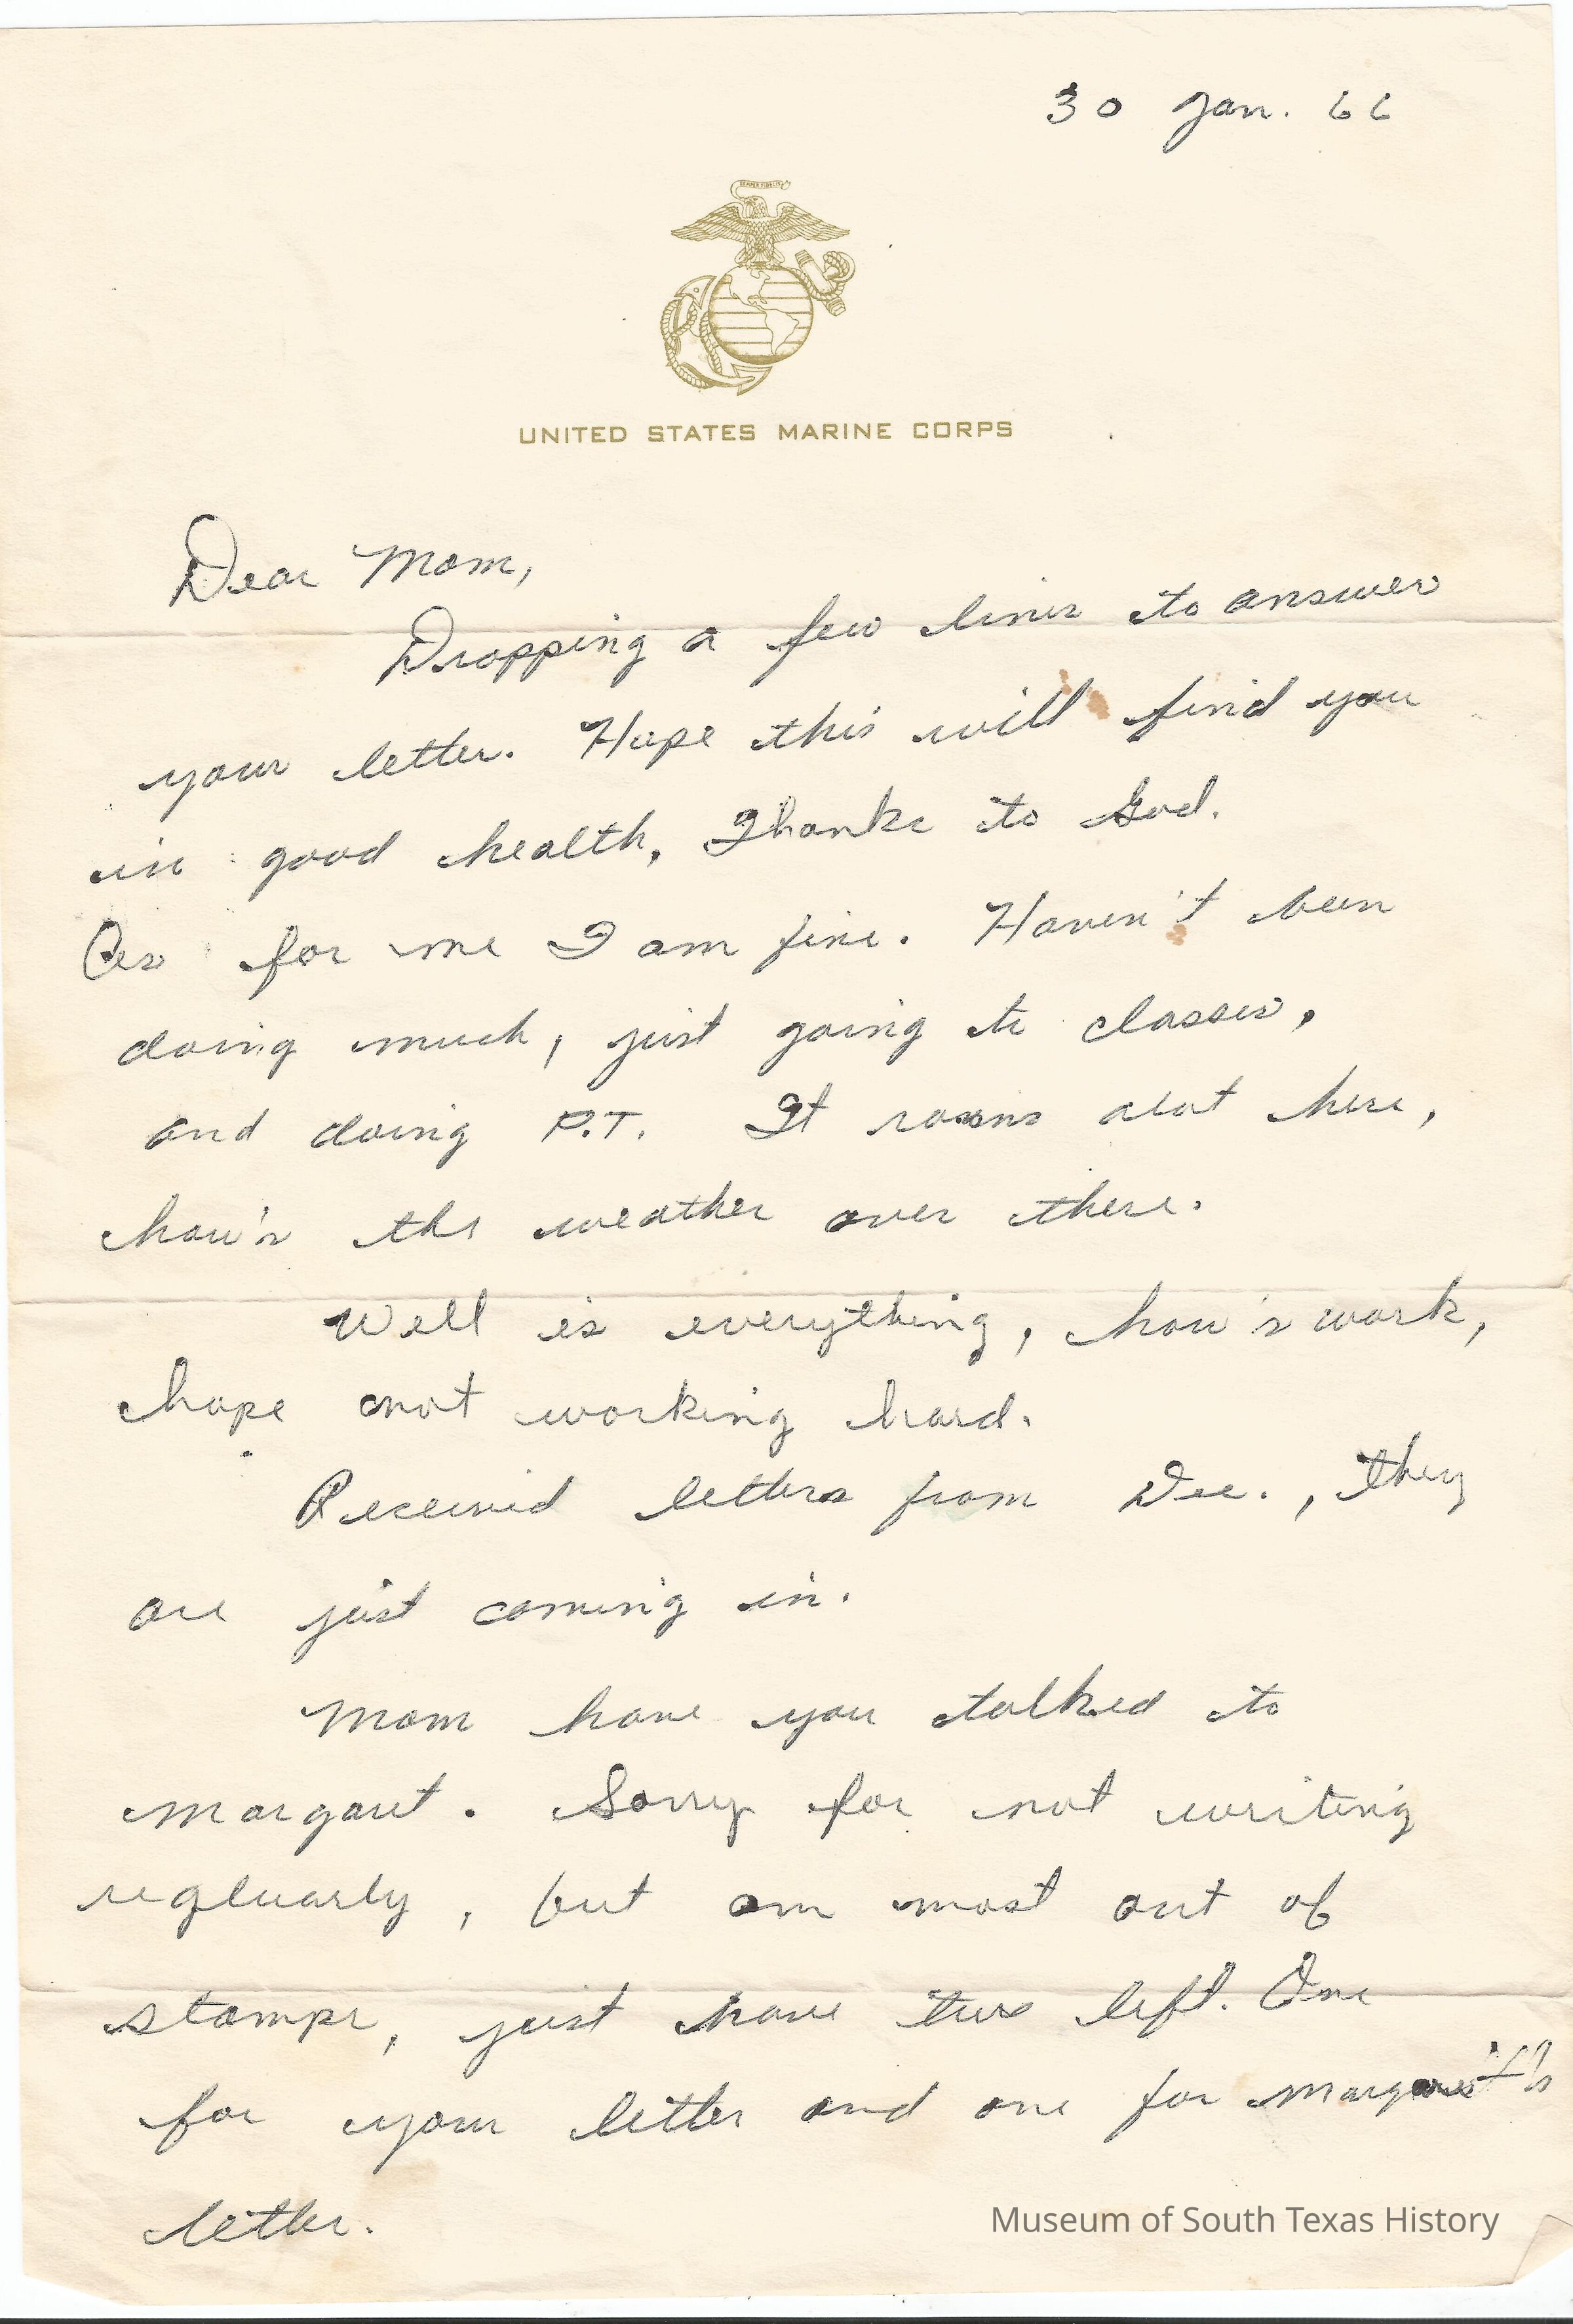 30 Jan. 66
SEMPER FIDELIS
UNITED STATES MARINE CORPS
Dear Mom,
Dropping a few lines to answer
your letter. Hope this will find you
in good health, Thanks to God.
As for me I am fine. Haven't been
doing much, just going to classes,
and doing P.T. It rains alot here,
how's the weather over there.
Well is everything, how's work,
hope not working hard.
Received letters from Dec., they
are just coming in.
Mom have you talked to
Margaret. Sorry for not writing
regluarly, but am most out of
stamps, just have two left. One
for your letter and one for Margaret's
letter.
Museum of South Texas History